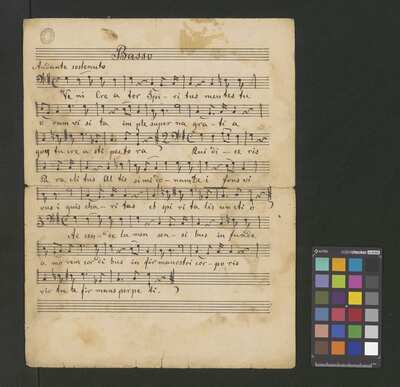 Basso
Andante sostenuto
Ve ni Cre a tor Spi- ri tus mentes tu
o rum vi si ta im ple super na gra- ti a
que tu cre a sti pecto ra Qui di- ce ris
Pa ra cli tus Al tis simi do- num De i fons vi
vus i gnis cha- ri tas et spi ri ta lis un cti o
Ac cen- de lu men sen- si bus in funde
a mo rem cor di bus in fir ma nostri cor- po ris
vir tu te fir mans per pe ti.